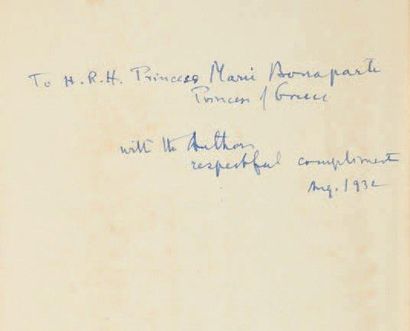 To H.R.H. Princess Marie Bonaparte
Princess of Greece
with the Author's
respectful compliments
Aug. 1932